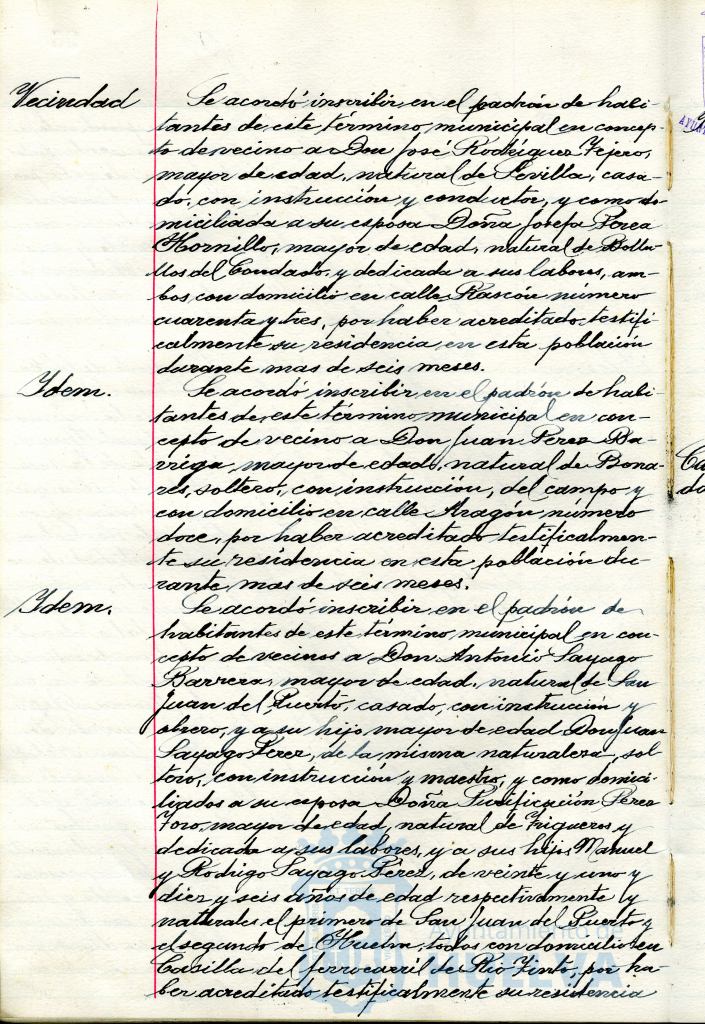 Vecindad
Se acordó inscribir en el padrón de habi-
tantes de este término municipal en concep-
to de vecino a Don José Rodríguez Tejero,
mayor de edad, natural de Sevilla, casa-
do, con instrucción y conductor, y como do-
miciliada a su esposa Doña Josefa Perea
Hornillo, mayor de edad, natural de Bollu-
llos del Condado y dedicada a sus labores, am-
bos con domicilio en calle Rascón número
cuarenta y tres, por haber acreditado testifi-
calmente su residencia en esta población
durante mas de seis meses.
Idem.
Se acordó inscribir en el padrón de habi-
tantes de este término municipal en con-
cepto de vecino a Don Juan Perez Ba-
rriga, mayor de edad, natural de Bona-
res, soltero, con instrucción, del campo y
con domicilio en calle Aragón número
doce, por haber acreditado testificalmen-
te su residencia en esta población du-
rante mas de seis meses.
Idem.
Se acordó inscribir en el padrón de
habitantes de este término municipal en con-
cepto de vecinos a Don Antonio Sayago
Barrera, mayor de edad, natural de San
Juan del Puerto, casado, con instrucción y
obrero, y a su hijo mayor de edad Don Juan
Sayago Pérez, de la misma naturaleza, sol-
tero, con instrucción y maestro, y como domici-
liados a su esposa Doña Purificación Pérez
Toro, mayor de edad, natural de Trigueros y
dedicada a sus labores, y a sus hijos Manuel
y Rodrigo Sayago Pérez, de veinte y uno y
diez y seis años de edad respectivamente y
naturales el primero de San Juan del Puerto y
el segundo de Huelva, todos con domicilio en
Casilla del ferrocarril de Rio Tinto, por ha-
ber acreditado testificalmente su residencia
Ayuntamiento de
HUELVA